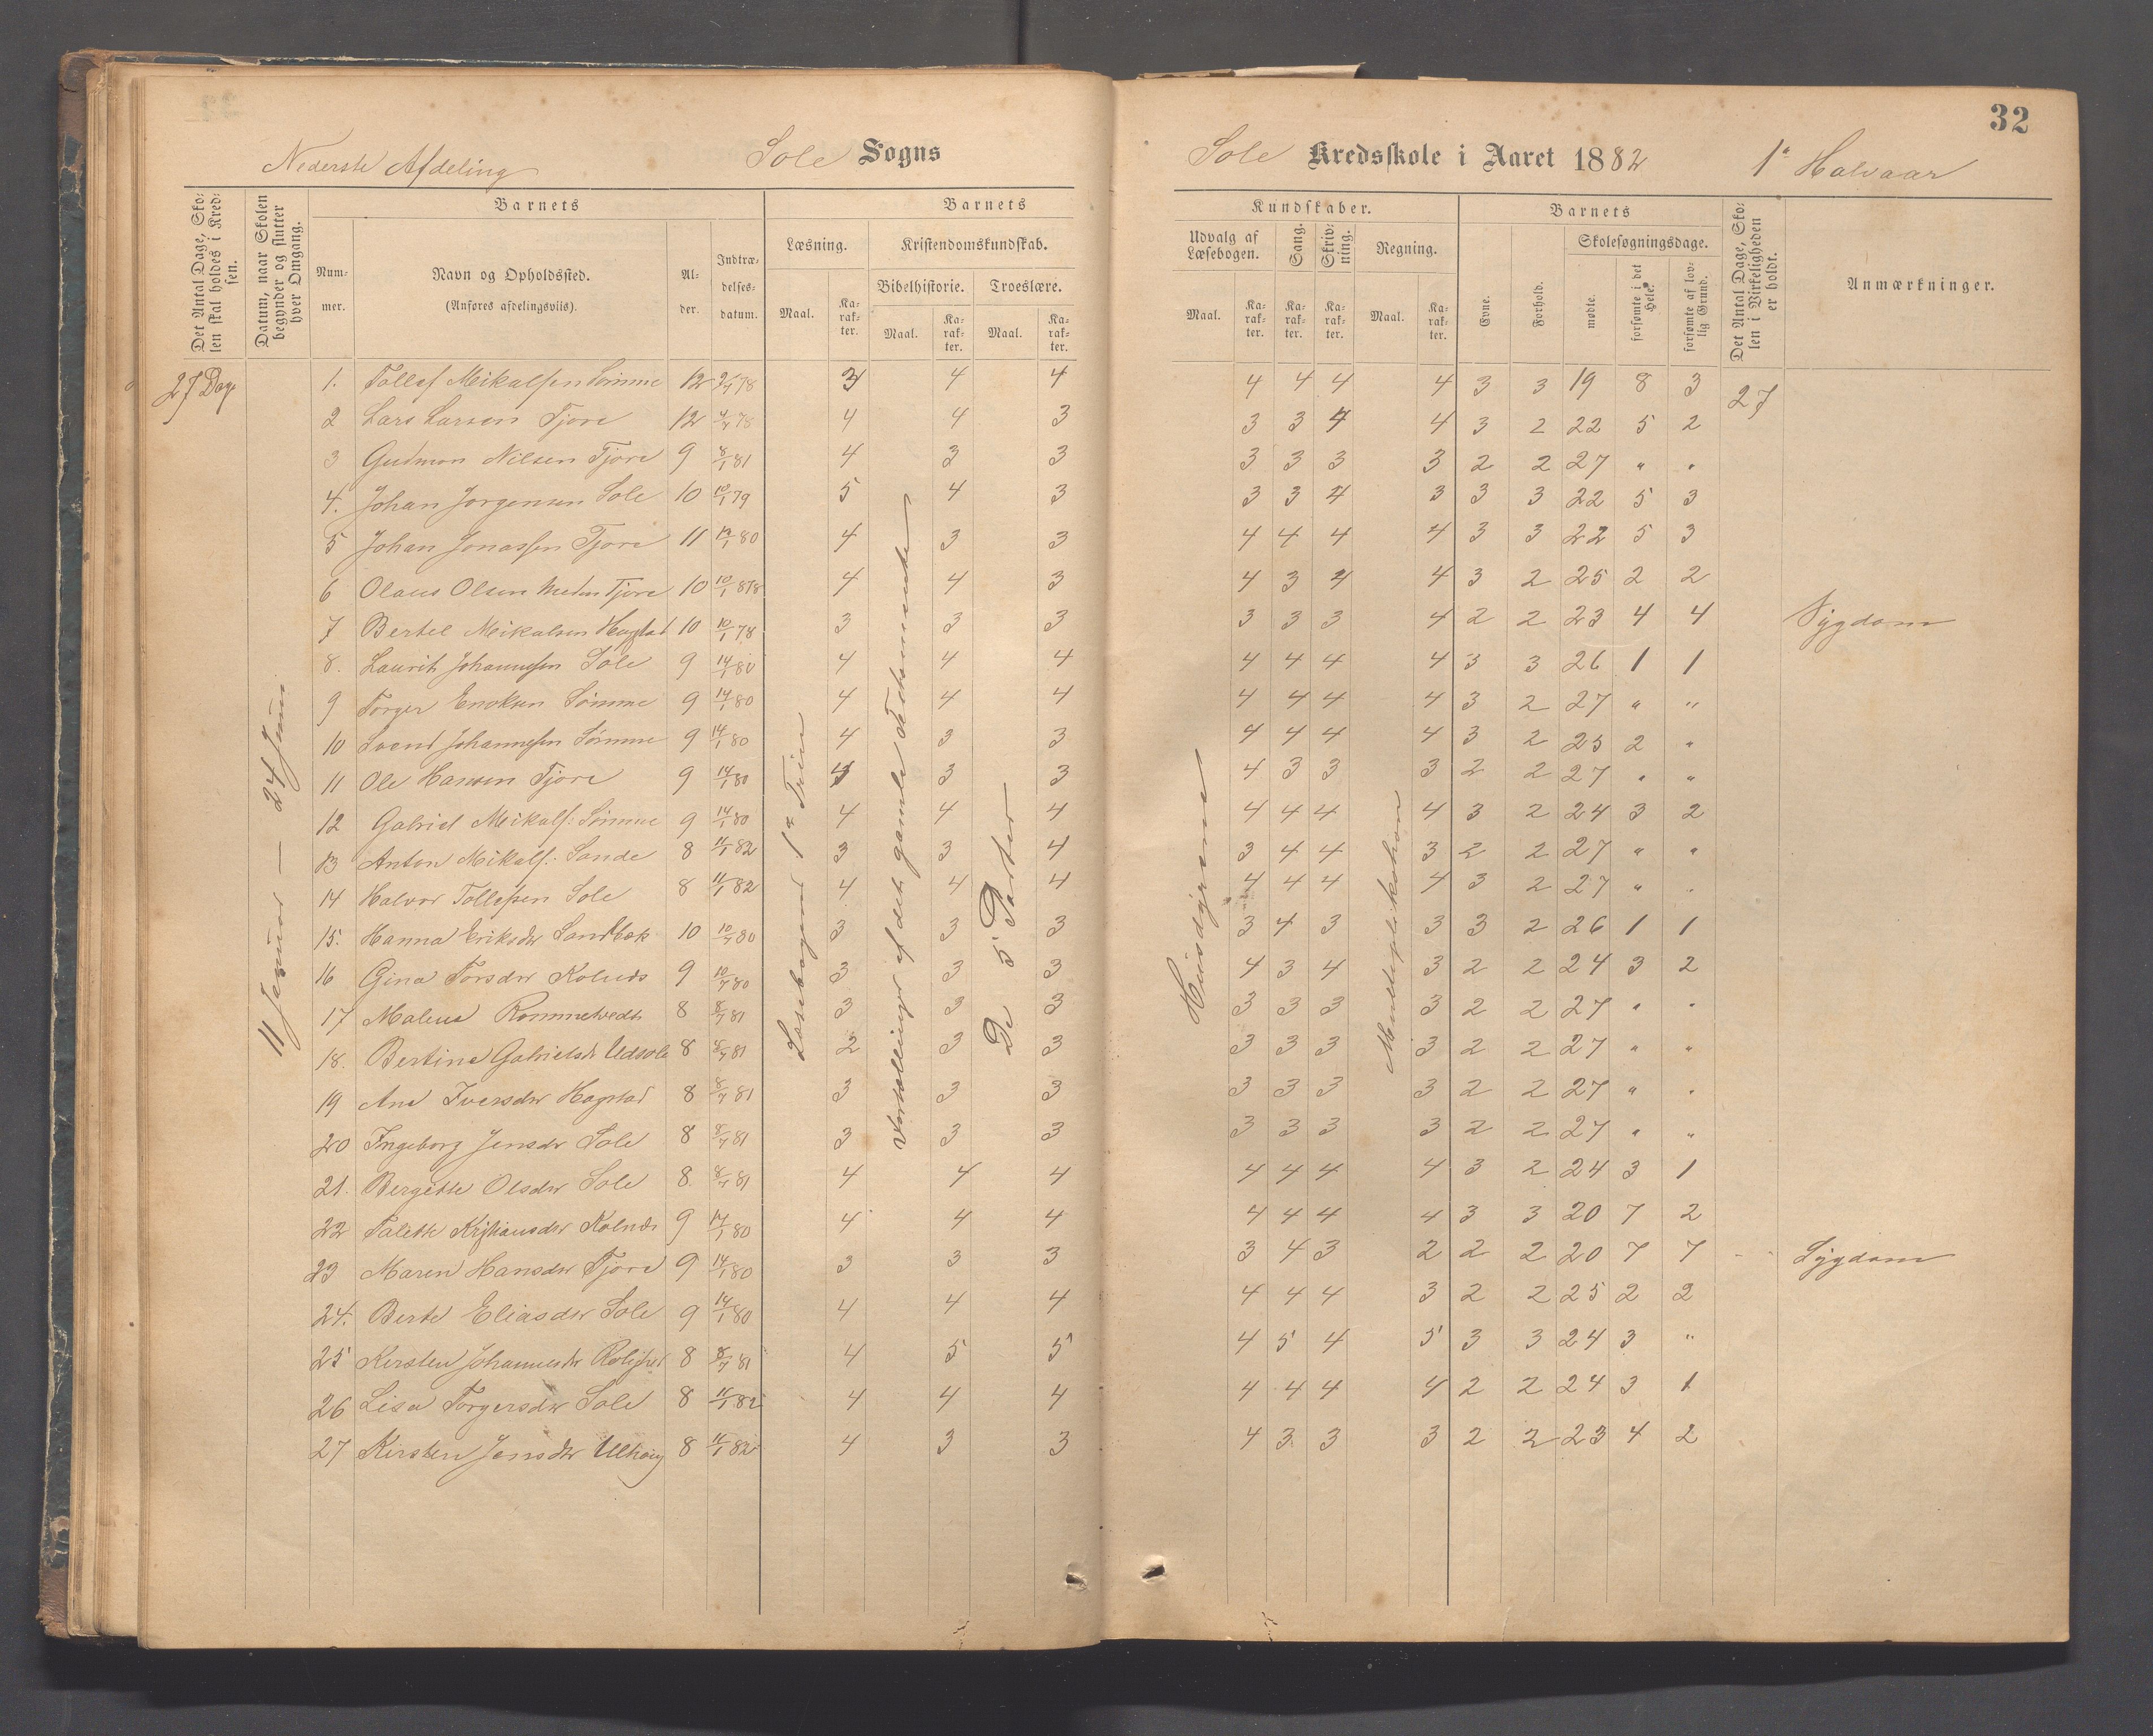 32
Nederste Afdeling Sole Sogns
Sole Kredsskole i Aaret 1882 1ste Halvaar
Det Antal Dage, Sko-
len skal holdes i Kred-
sen.
Datum, naar Skolen
begynder og slutter
hver Omgang.
Barnets
Num-
mer.
Navn og Opholdssted.
(Anføres afdelingsviis).
Al-
der.
Indtræ-
delses-
datum.
Barnets
Læsning.
Kristendomskundskab.
Bibelhistorie. Troeslære.
Maal. Ka-
rak-
ter. Maal. Ka-
rak-
ter. Maal. Ka-
rak-
ter.
Kundskaber.
Udvalg af
Læsebogen.
Sang.
Skriv-
ning.
Regning.
Maal. Ka-
rak-
ter. Ka-
rak-
ter. Ka-
rak-
ter. Maal. Ka-
rak-
ter.
Barnets
Evne.
Forhold.
Skolesøgningsdage.
mødte.
forsømte i det
Hele.
forsømte af lov-
lig Grund.
Det Antal Dage, Sko-
len i Virkeligheden
er holdt.
Anmærkninger.
27 Dage
11 Januar — 24 Juni
Læsebogens 1ste Trin
Fortællinger af det gamle Testamente
De 5 Parter
Husdyrene
Multiplikation
1. Tollef Mikalsen Sømme 12 78 3 4 4 4 4 4 4 3 3 19 8 3 27
2 Lars Larsen Tjore 12 78 4 4 3 3 3 4 4 3 2 22 5 2
3 Gudmon Nilsen Tjore 9 8/1 81 4 3 3 3 3 3 3 2 2 27 " "
4. Johan Jorgensen Sole 10 10/1 79 5 4 3 3 3 4 3 3 3 22 5 3
5 Johan Jonassen Tjore 11 80 4 3 3 4 4 4 4 3 3 22 5 3
6 Olaus Olsen Tjore 10 10/1 4 4 3 4 3 4 4 3 2 25 2 2
7 Bertel Mikalsen Hagstad 10 10/1 78 3 3 3 3 3 3 4 2 2 23 4 4 Sygdom
8. Laurits Johannessen Sole 9 14/1 80 4 4 4 4 4 4 4 3 3 26 1 1
9 Torger Enoksen Sømme 9 14/1 80 4 4 4 4 4 4 4 3 2 27 " "
10 Svend Johannessen Sømme 9 14/1 80 4 3 3 4 4 4 4 3 2 25 2 "
11 Ole Hansen Tjore 9 14/1 80 4 3 3 4 3 3 3 2 2 27 " "
12 Gabriel Mikals: Sømme 9 14/1 80 4 4 4 4 4 4 4 3 2 24 3 2
13 Anton Mikals: Sande 8 11/1 82 3 3 4 3 4 4 3 2 2 27 " "
14 Halvor Tollefsen Sole 8 11/1 82 4 4 4 4 4 4 4 3 2 27 " "
15. Hanna Eriksdtr Sandbæk 10 10/7 80 3 3 3 3 4 3 3 3 2 26 1 1
16 Gina Torsdtr Kolnes 9 10/7 80 3 3 3 4 3 4 3 2 2 24 3 2
17 Malene Rommetvedt 8 8/7 81 3 3 3 3 3 3 3 2 2 27 " "
18. Bertine Gabrielsdr Udsola 8 8/7 81 2 3 3 3 3 3 3 2 2 27 " "
19 Ane Iversdtr Hagstad 8 8/7 81 3 3 3 3 3 3 3 2 2 27 " "
20 Ingeborg Jensdr Sole 8 8/7 81 3 3 3 3 3 3 3 2 2 27 " "
21. Bergitte Olsdtr Sole 8. 8/7 81 4 4 4 4 4 4 4 3 2 24 3 1
22 Talette Kristiansdtr Kolnes 9 14/1 80 4 4 4 4 4 4 4 3 3 20 7 2
23 Maren Hansdtr Tjore 9 14/1 80 3 3 3 3 4 3 2 2 2 20 7 7 Sygdom
24. Berte Eliasdtr Sole 9 14/1 80 4 4 4 4 4 4 3 2 2 25 2 2
25 Kirsten Johannesdtr 8 8/7 81 4 5 5 4 5 4 5 3 3 24 3 "
26 Lisa Torgersdtr Sole 8 11/1 82 4 4 4 4 4 4 4 2 2 24 3 1
27 Kirsten Jensdtr Ulhaug 8 11/1 82 4 3 3 4 3 3 3 2 2 23 4 2